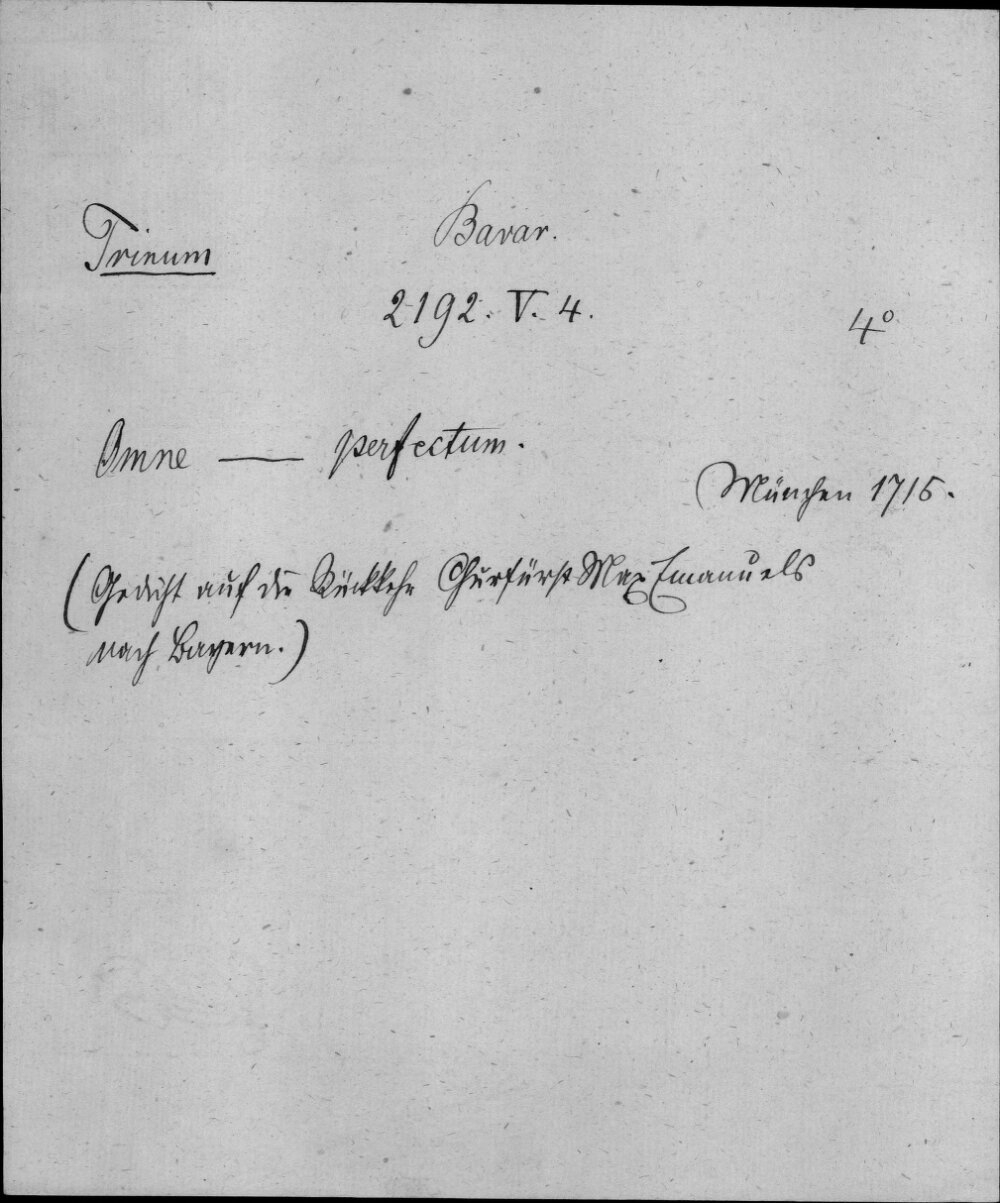 Trinum
Bavar.
2192. V. 4.
4°
Omne — perfectum.
(München 1715.
(Gedicht auf die Rückkehr Churfürst Max Emanuels
nach Bayern.)